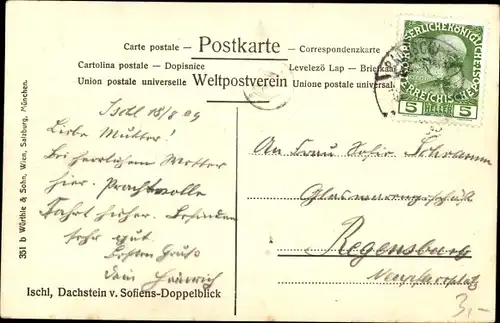 Carte postale — Postkarte — Correspondenzkarte
Cartolina postale — Dopisnice
Levelező Lap — Briefkaa
Union postale universelle Weltpostverein Unione postale universal
5 HELLER 5
351 b Würthle & Sohn, Wien, Salzburg, München.
Ischl 18/8 09
Liebe Mutter!
Bei herrlichem Wetter
hier. Prachtvolle
Fahrt hieher. Befinden
sehr gut.
besten Gruß
dein Heinrich
An Frau Sofie Schramm
Regensburg
Neupfarrplatz
3,-
Ischl, Dachstein v. Sofiens-Doppelblick